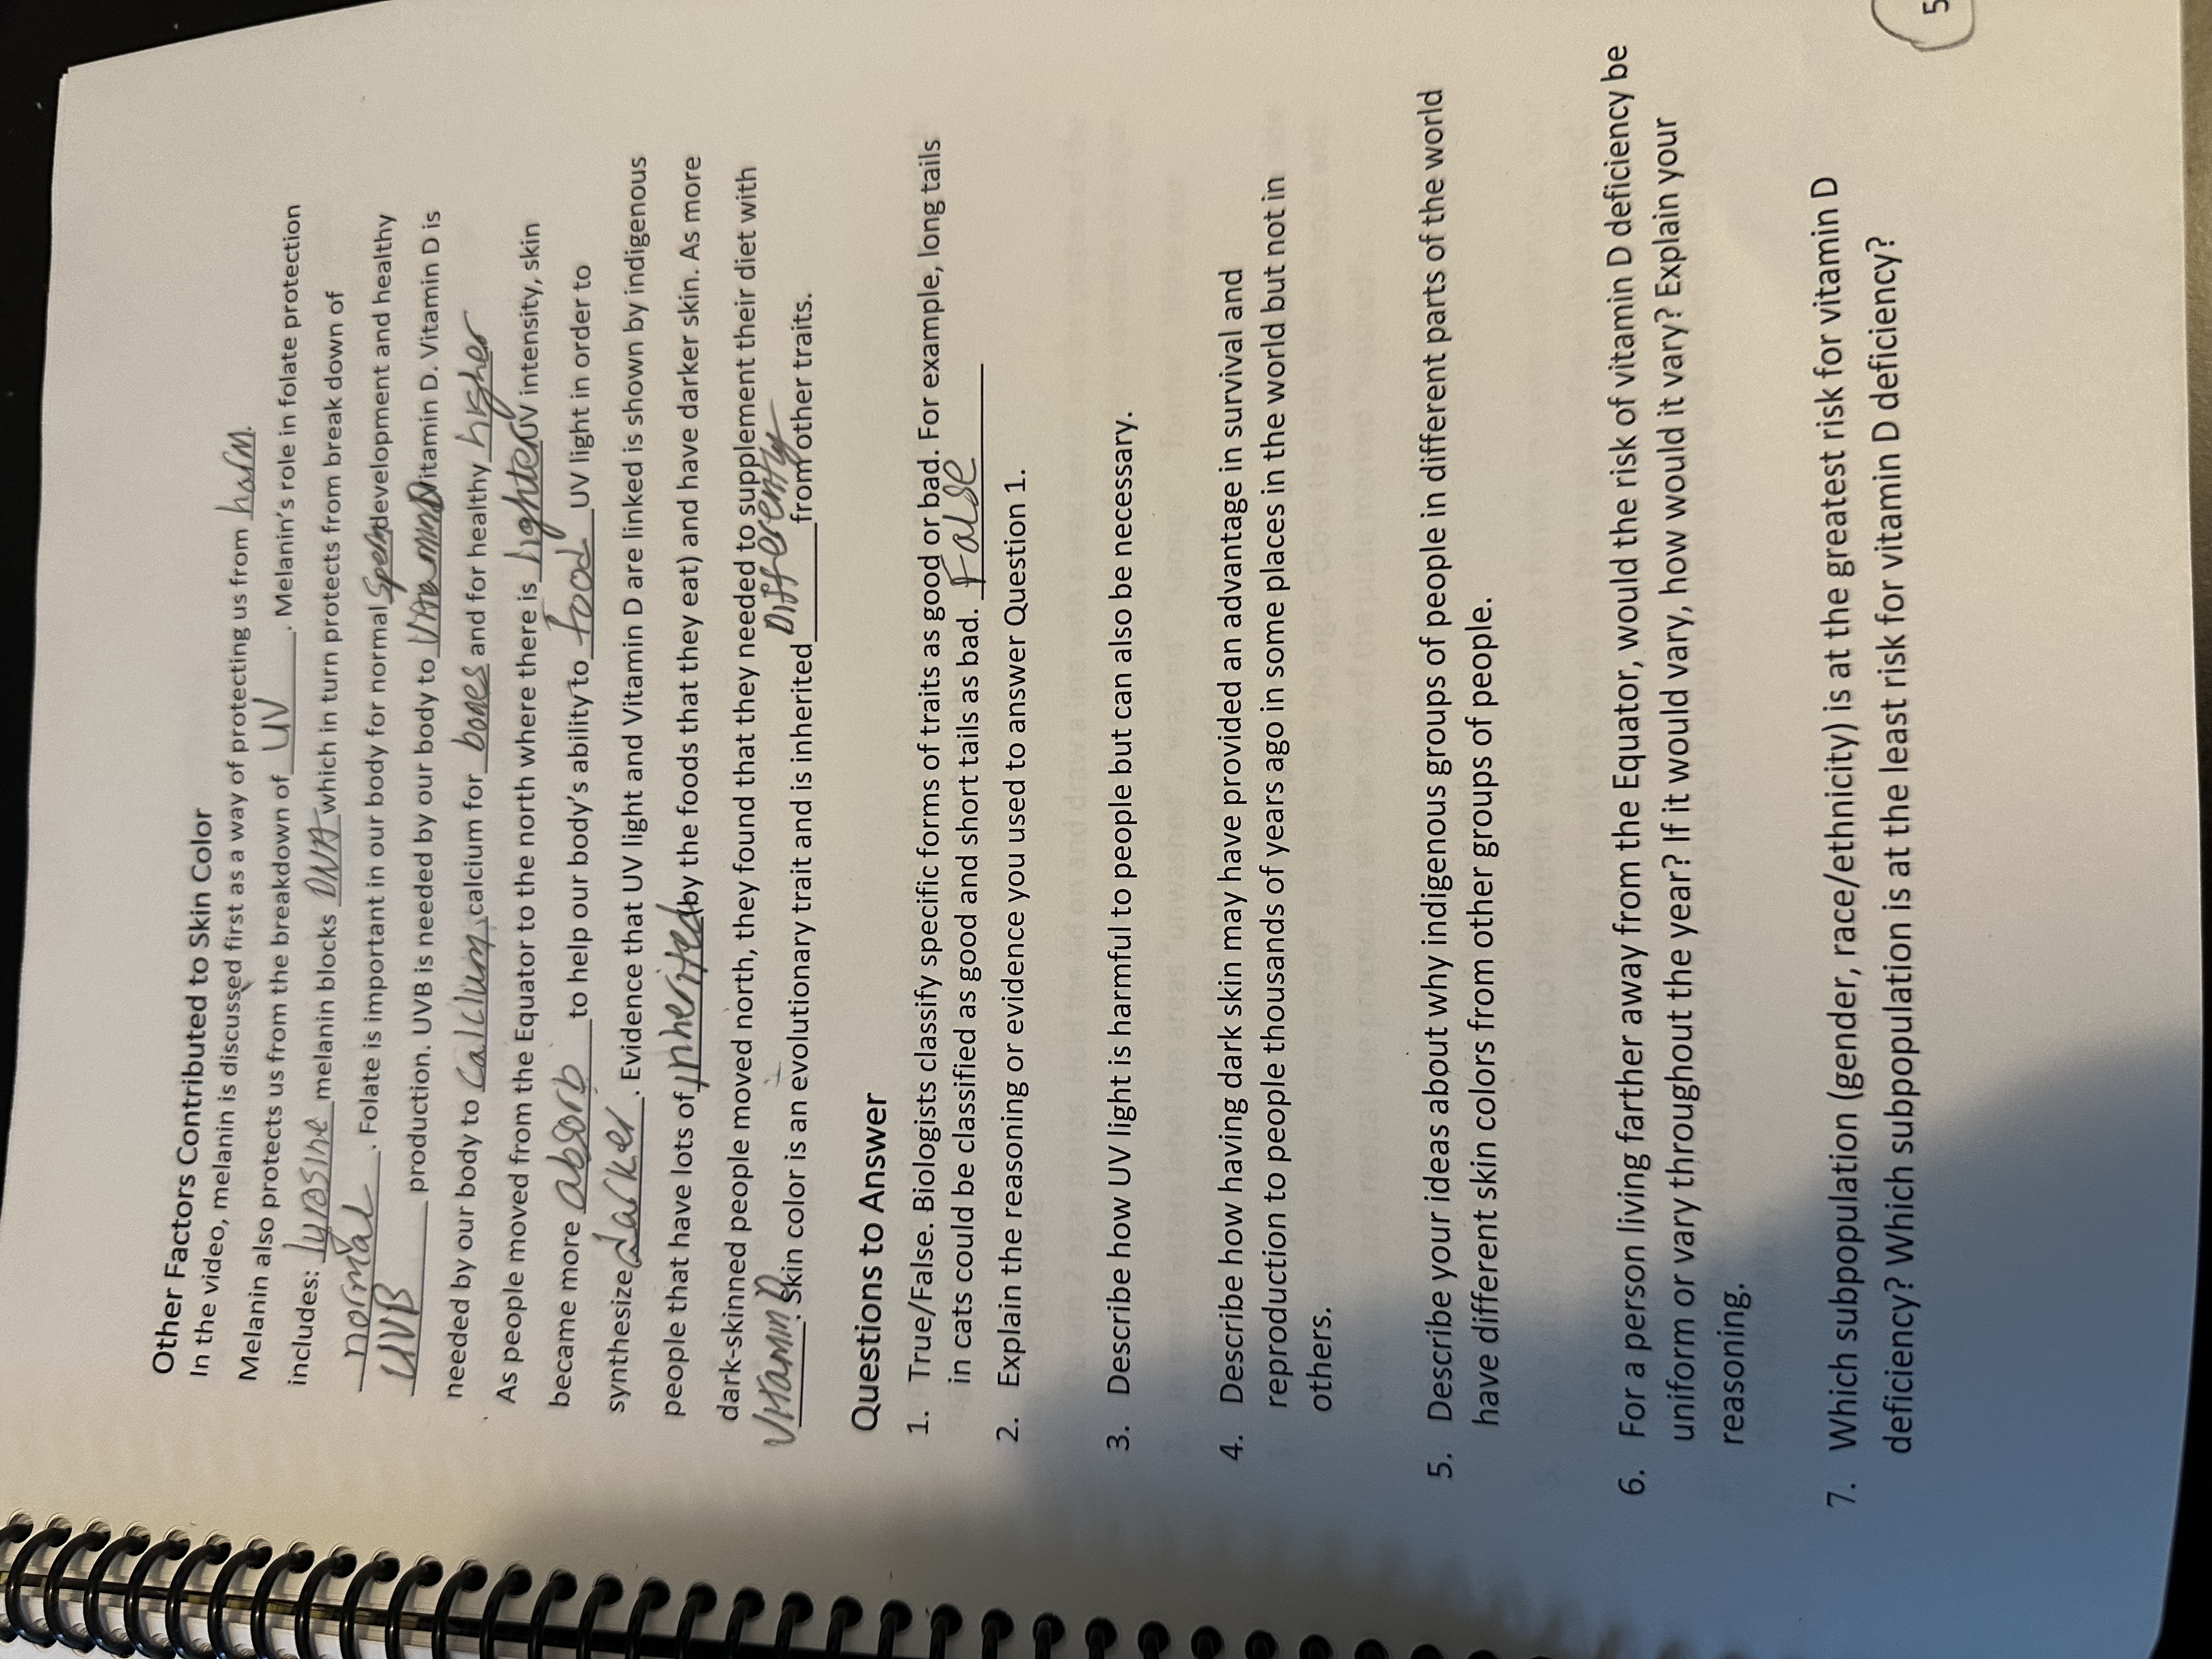 Other Factors Contributed to Skin Color
In the video, melanin is discussed first as a way of protecting us from harm.
Melanin also protects us from the breakdown of UV. Melanin's role in folate protection
includes: Tyrosine melanin blocks DNA which in turn protects from break down of
normal. Folate is important in our body for normal Sperm development and healthy
UVB production. UVB is needed by our body to Vitamin D Vitamin D. Vitamin D is
needed by our body to Calcium, calcium for bones and for healthy higher
As people moved from the Equator to the north where there is lighter UV intensity, skin
became more absorb to help our body's ability to food UV light in order to
synthesize darker. Evidence that UV light and Vitamin D are linked is shown by indigenous
people that have lots of inherited (by the foods that they eat) and have darker skin. As more
dark-skinned people moved north, they found that they needed to supplement their diet with
Vitamin D. Skin color is an evolutionary trait and is inherited Differently from other traits.
Questions to Answer
1. True/False. Biologists classify specific forms of traits as good or bad. For example, long tails
in cats could be classified as good and short tails as bad. False
2. Explain the reasoning or evidence you used to answer Question 1.
3. Describe how UV light is harmful to people but can also be necessary.
4. Describe how having dark skin may have provided an advantage in survival and
reproduction to people thousands of years ago in some places in the world but not in
others.
5. Describe your ideas about why indigenous groups of people in different parts of the world
have different skin colors from other groups of people.
6. For a person living farther away from the Equator, would the risk of vitamin D deficiency be
uniform or vary throughout the year? If it would vary, how would it vary? Explain your
reasoning.
7. Which subpopulation (gender, race/ethnicity) is at the greatest risk for vitamin D
deficiency? Which subpopulation is at the least risk for vitamin D deficiency?
5